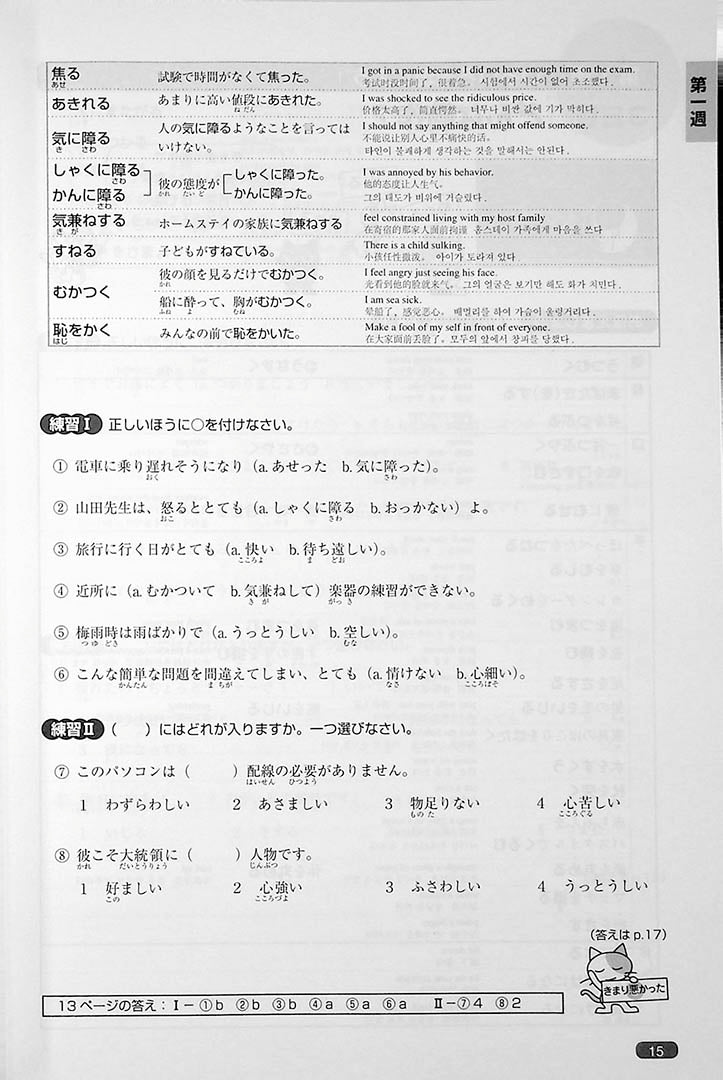 第一週
焦る 試験で時間がなくて焦った。 I got in a panic because I did not have enough time on the exam.
あせ 考试时没时间了，很着急。 시험에서 시간이 없어 초조했다.
あきれる あまりに高い値段にあきれた。 I was shocked to see the ridiculous price.
ね だん 价格太高了，简直愕然。 너무나 비싼 값에 기가 막히다.
気に障る 人の気に障るようなことを言っては I should not say anything that might offend someone.
き さわ いけない。 不能说让别人心里不痛快的话。
타인이 불쾌하게 생각하는 것을 말해서는 안된다.
しゃくに障る 彼の態度が しゃくに障った。 I was annoyed by his behavior.
さわ かれ たい ど 他的态度让人生气。
かんに障る かんに障った。 그의 태도가 비위에 거슬렸다.
さわ
気兼ねする ホームステイの家族に気兼ねする feel constrained living with my host family
き が 在寄宿的那家人面前拘谨 홈스테이 가족에게 마음을 쓰다
すねる 子どもがすねている。 There is a child sulking.
小孩任性撒泼。 아이가 토라져 있다.
むかつく 彼の顔を見るだけでむかつく。 I feel angry just seeing his face.
かれ 光看到他的脸就来气。 그의 얼굴은 보기만 해도 화가 치민다.
船に酔って、胸がむかつく。 I am sea sick.
ふね よ むね 晕船了，感觉恶心。 배멀미를 하여 가슴이 울렁거리다.
恥をかく みんなの前で恥をかいた。 Make a fool of my self in front of everyone.
はじ 在大家面前丢脸了。 모두의 앞에서 창피를 당했다.
練習Ⅰ 正しいほうに○を付けなさい。
① 電車に乗り遅れそうになり（a. あせった b. 気に障った）。
おく さわ
② 山田先生は、怒るととても（a. しゃくに障る b. おっかない）よ。
おこ さわ
③ 旅行に行く日がとても（a. 快い b. 待ち遠しい）。
こころよ ま どお
④ 近所に（a. むかついて b. 気兼ねして）楽器の練習ができない。
き が がっ き
⑤ 梅雨時は雨ばかりで（a. うっとうしい b. 空しい）。
つ ゆ どき むな
⑥ こんな簡単な問題を間違えてしまい、とても（a. 情けない b. 心細い）。
かんたん ま ちが なさ こころぼそ
練習Ⅱ （ ）にはどれが入りますか。一つ選びなさい。
⑦ このパソコンは（ ）配線の必要がありません。
はいせん ひつよう
1 わずらわしい 2 あさましい 3 物足りない 4 心苦しい
もの た こころぐる
⑧ 彼こそ大統領に（ ）人物です。
かれ だいとうりょう じんぶつ
1 好ましい 2 心強い 3 ふさわしい 4 うっとうしい
この こころづよ
（答えは p.17）
きまり悪かった
13ページの答え：Ⅰ－①b ②b ③b ④a ⑤a ⑥a Ⅱ－⑦4 ⑧2
15